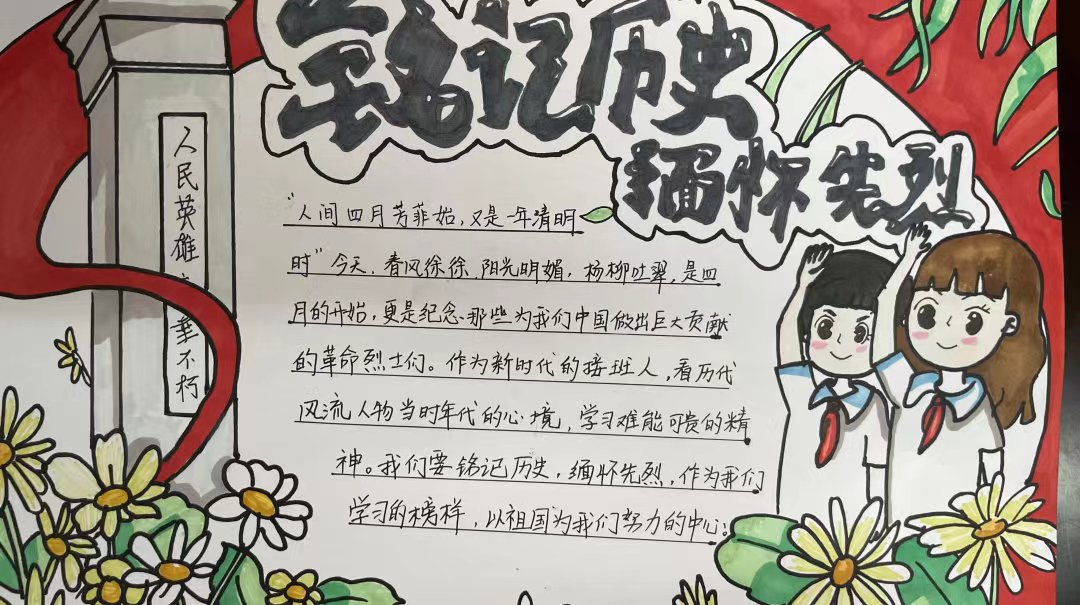 铭记历史
缅怀先烈
人民英雄永垂不朽
“人间四月芳菲始，又是一年清明
时”今天，春风徐徐，阳光明媚，杨柳吐翠，是四
月的开始，更是纪念那些为我们中国做出巨大贡献
的革命烈士们。作为新时代的接班人，看历代
风流人物当时年代的心境，学习难能可贵的精
神。我们要铭记历史，缅怀先烈，作为我们
学习的榜样，以祖国为我们努力的中心；